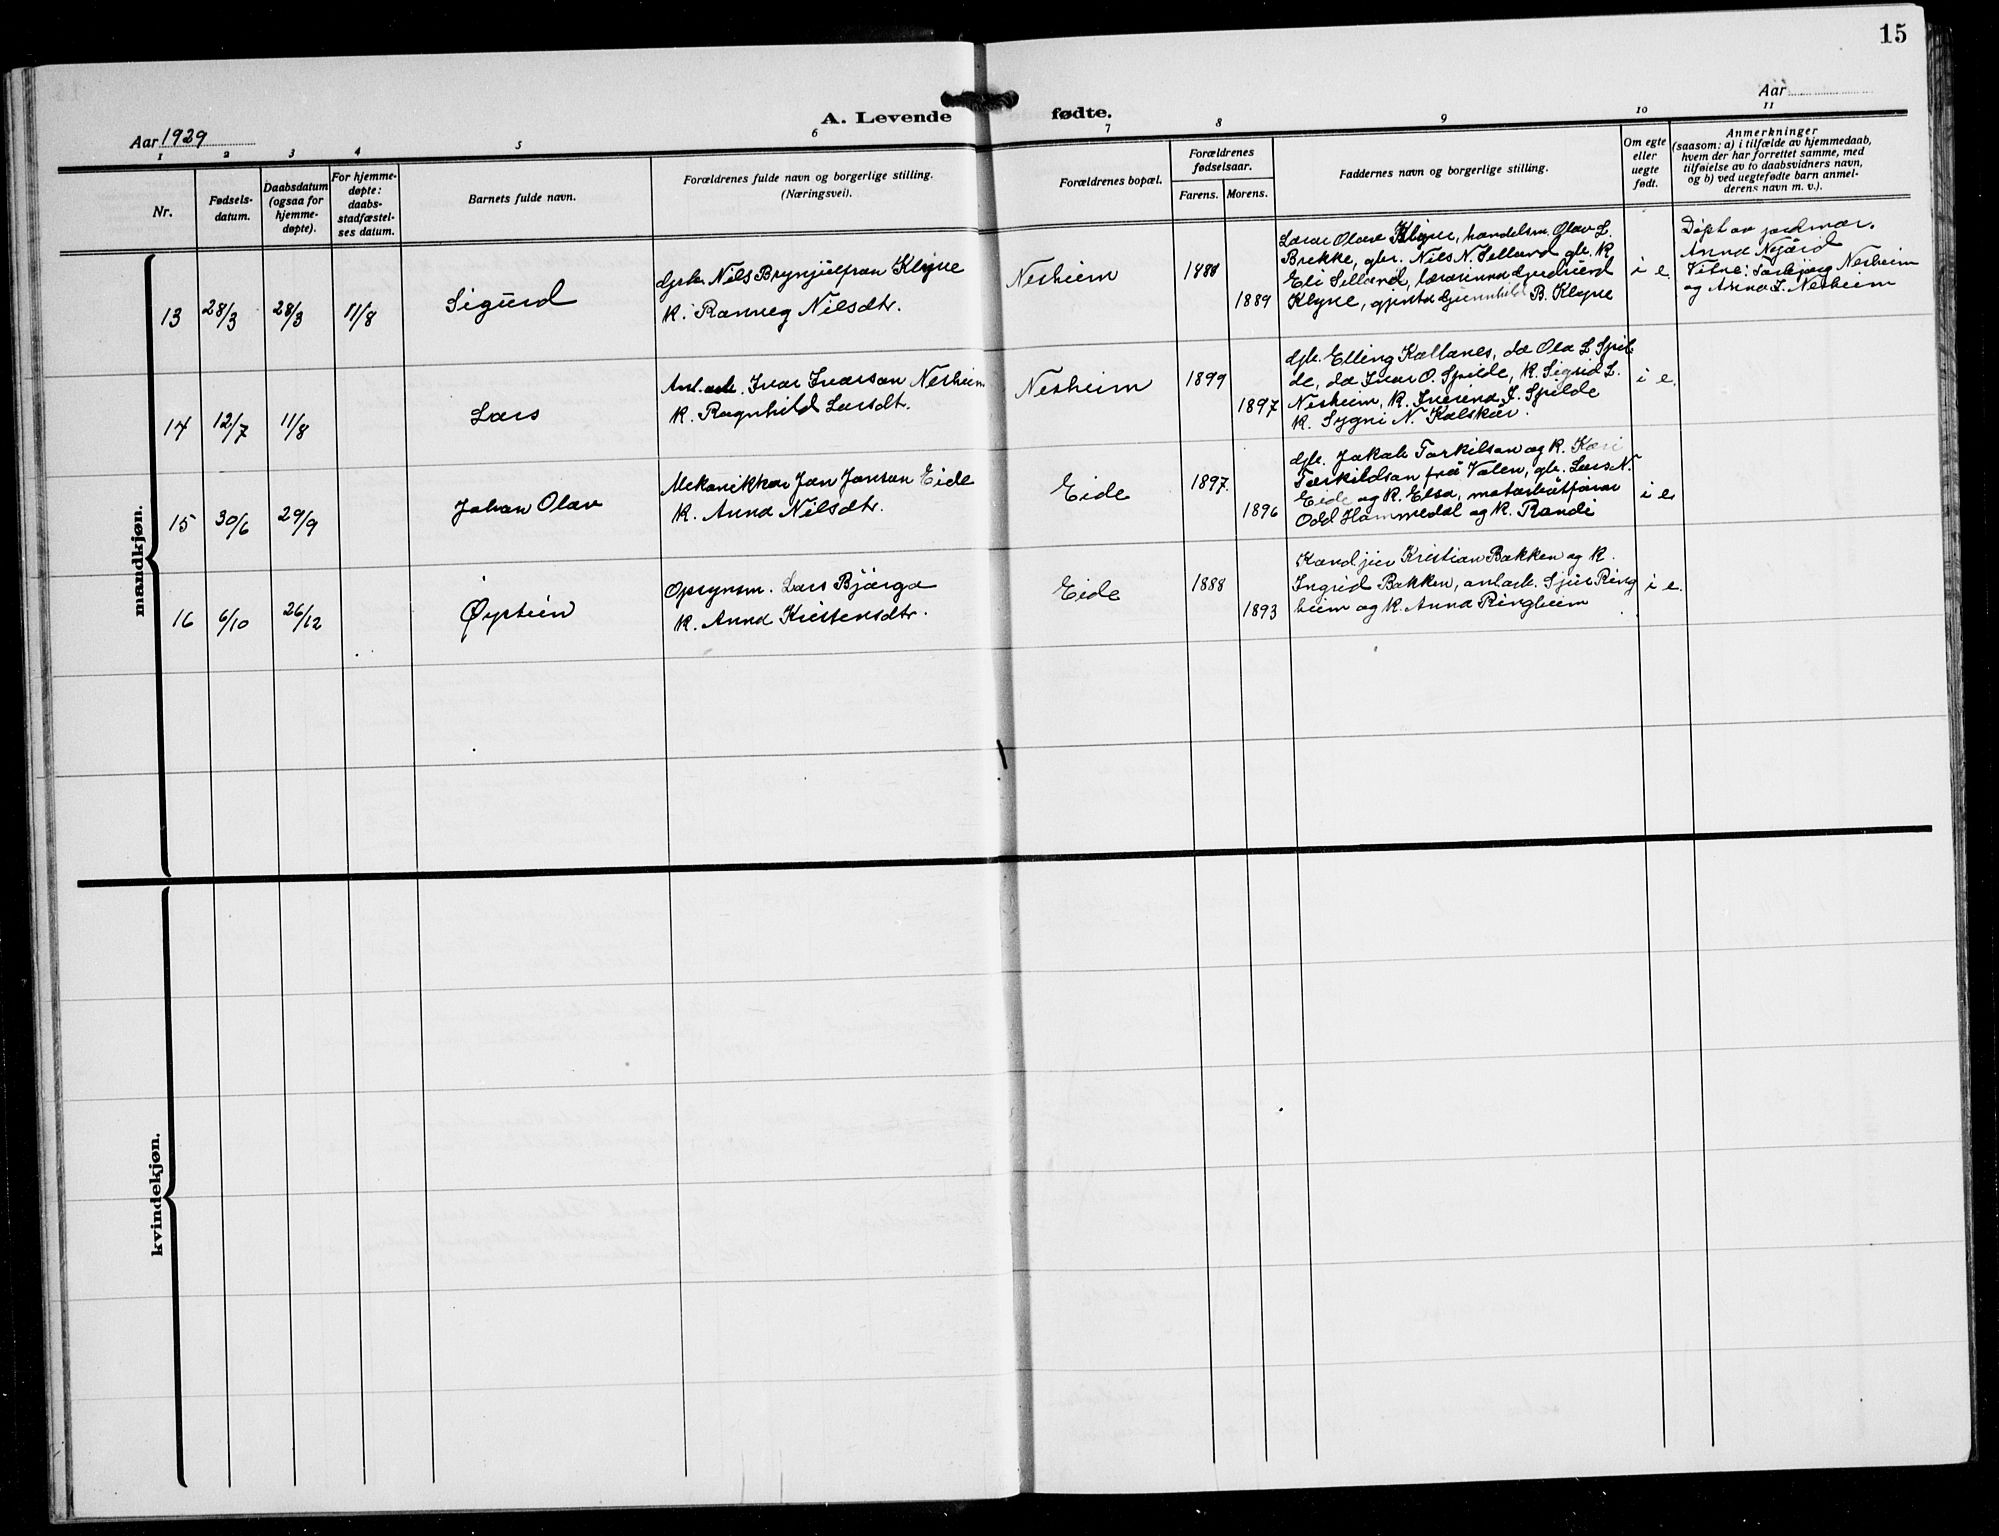 15
A. Levende fødte.
Aar 1929
Aar
1 2 3 4 5 6 7 8 9 10 11
Nr.
Fødsels-
datum.
Daabsdatum
(ogsaa for
hjemme-
døpte).
For hjemme-
døpte:
daabs-
stadfæstel-
ses datum.
Barnets fulde navn.
Forældrenes fulde navn og borgerlige stilling.
(Næringsvei).
Forældrenes bopæl.
Forældrenes
fødselsaar.
Farens. Morens.
Faddernes navn og borgerlige stilling.
Om egte
eller
uegte
født.
Anmerkninger
(saasom: a) i tilfælde av hjemmedaab,
hvem der har forrettet samme, med
tilføielse av to daabsvidners navn,
og b) ved uegtefødte barn anmel-
derens navn m. v.).
mandkjøn.
13 28/3 28/3 11/8
Sigurd
Nils Brynjulfsan Klyve
K. Rannveg Nilsdtr.
Nesheim
1888
1889
Lærar Olav Klyve, handelsm. Olav L.
Brekke, gbr. Nils N. Selland gbr. K
Eli Selland, lærarinna Gjertrud
Klyve, gjenta Gunnhild B. Klyve
i e.
Døpt av jordmor.
Anna Nygård
Vitne: Torbjørg Nesheim
og Anna I. Nesheim
14 12/7 11/8
Lars
Anl.arb. Ivar Ivarsan Nesheim
K. Ragnhild Larsdt.
Nesheim
1899
1897
gbr. Elling Kallanes, do Ola L. Spil-
de, do Ivar O. Spilde, K. Sigrid L.
Nesheim, K. I. Spilde
K. Sygni N. Kalskår.
i e.
15 30/6 29/9
Johan Olav
Mekanikkar Jan Jansan Eide
K. Anna Nilsdtr.
Eide
1897.
1896
gbr. Jakob Torkilsan og K. Kari
Torkildsan frå Valen, gbr. Lars N.
Eide og K. Elsa, motorbåtførar
Odd Hammedal og K. Randi
i e
16 6/10 26/12
Øystein
Opsynsm. Lars Bjørga
K. Anna Kristensdtr.
Eide
1888
1893
Kand jur Kristian Bakken og K.
Ingrid Bakken, anlarb. Sjur Ring
heim og K. Anna Ringheim
i e.
kvindekjøn.